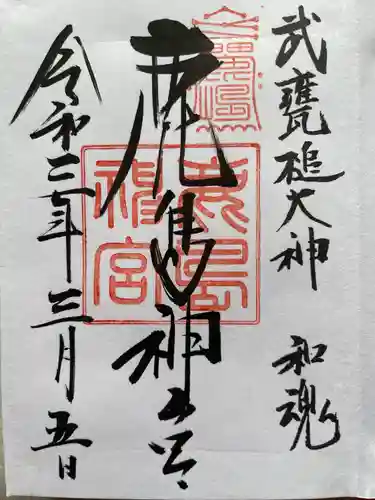 武甕槌大神 和魂
鹿島神宮
令和二年三月五日
鹿島神宮